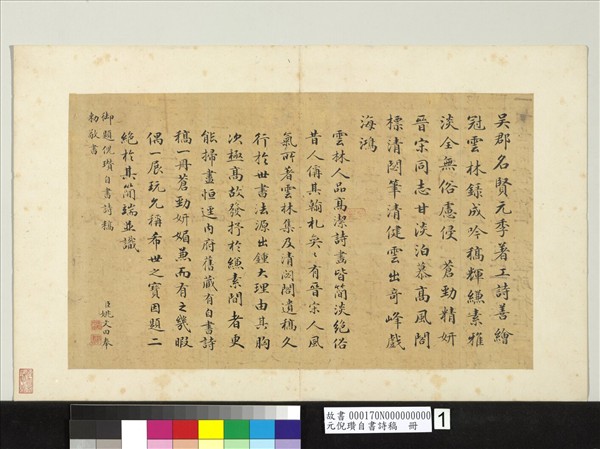 吳郡名賢元季著工詩善繪
冠雲林錄成吟稿輝縑素雅
淡全無俗慮侵 蒼勁精妍
晉宗同志甘淡泊慕高風閣
標清閟筆清健雲出奇峰戲
海鴻
雲林人品高潔詩畫皆簡淡絕俗
昔人偁其翰札奕〻有晉宋人風
氣所著雲林集及清閟閣遺稿久
行於世書法源出鍾大理由其胸
次極高故發抒於縑素間者更
能掃盡恒逕內府舊藏有自書詩
稿一冊蒼勁妍媚兼而有之幾暇
偶一展玩允稱希世之寶因題二
絕於其簡端並識
御題倪瓚自書詩稿
臣姚文田奉
勅敬書
故書 000170N000000000
元倪瓚自書詩稿 冊
1